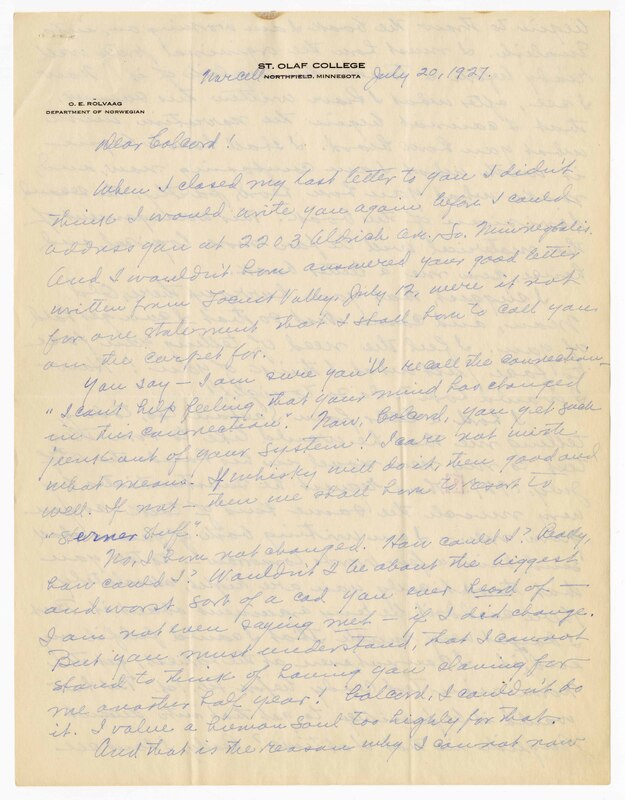 ST. OLAF COLLEGE
Marcell NORTHFIELD, MINNESOTA July 20, 1927.
O. E. RÖLVAAG
DEPARTMENT OF NORWEGIAN
Dear Colcord!
When I closed my last letter to you I didn't
think I would write you again before I could
address you at 2203 Aldrich Av. So. Minneapolis.
And I wouldn't have answered your good letter
written from Locust Valley, July 12, were it not
for one statement that I shall have to call you
on the carpet for.
You say — I am sure you'll recall the connection —
"I can't help feeling that your mind has changed
in this connection". Now, Colcord, you get such
junk out of your system! I care not with
what means. If whisky will do it, then good and
well. If not — then we shall have to resort to
"Sterner stuff".
No, I have not changed. How could I? Really,
how could I? Wouldn't I be about the biggest
and worst sort of a cad you ever heard of —
I am not even saying met — if I did change.
But you must understand, that I cannot
stand to think of having you slaving for
me another half year! Colcord, I couldn't do
it. I value a human soul too highly for that.
And that is the reason why I cannot now